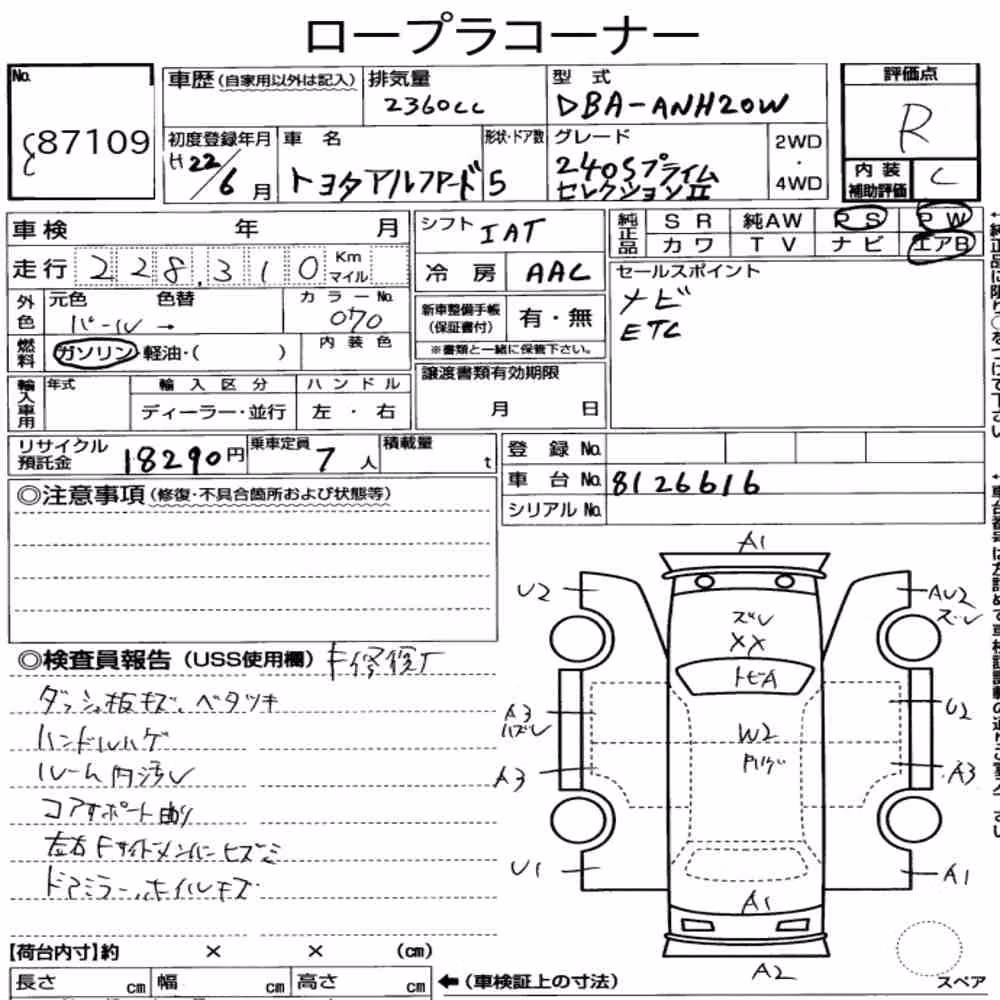 ロープラコーナー
No.
87109
車歴(自家用以外は記入)
排気量
2360cc
型 式
DBA-ANH20W
評価点
R
内装
補助評価
C
初度登録年月
H22/6月
車 名
トヨタアルファード
形状・ドア数
5
グレード
240Sプライム
セレクションII
2WD
・
4WD
車検 年 月
走行 228,310 Km
マイル
シフト IAT
冷 房 AAC
純正品
SR 純AW PS PW
カワ TV ナビ エアB
セールスポイント
ナビ
ETC
外色
元色 色替
パール →
カラーNo.
070
新車整備手帳
(保証書付)
有・無
※書類と一緒に保管下さい。
燃料
ガソリン・軽油・( )
内装色
輸入車用
年式
輸入区分
ディーラー・並行
ハンドル
左 ・ 右
譲渡書類有効期限
月 日
リサイクル
預託金
18290円
乗車定員
7人
積載量
t
登 録 No.
車 台 No. 8126616
シリアル No.
◎注意事項(修復・不具合箇所および状態等)
◎検査員報告(USS使用欄) F修復了
ダッシュ板キズ、ベタツキ
ハンドルハゲ
ルーム内汚レ
コアサポート曲り
左右Fサイドメンバーヒズミ
ドアミラー、ホイルキズ
A1
U2
AU2
ズレ
ズレ
XX
トビA
A3
ハズレ
U2
W2
A3
A3
U1
A1
A1
A2
スペア
【荷台内寸】約 × × (cm)
長さ cm 幅 cm 高さ cm
←(車検証上の寸法)